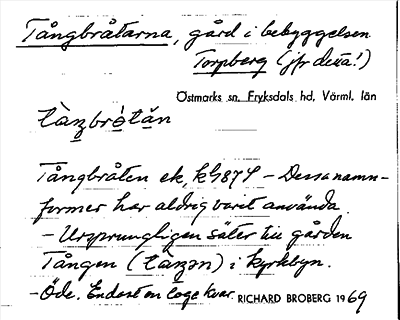 Tångbråtarna, gård i bebyggelsen
Torpberg (jfr detta!)
Östmarks sn, Fryksdals hd, Värml. län
tàŋbrö̀tän
Tångbråten ek, k 1874 – Dessa namn-
former har aldrig varit använda
– Ursprungligen säter till gården
Tången (tàŋən) i kyrkbyn.
– Öde. Endast en loge kvar. RICHARD BROBERG 1969